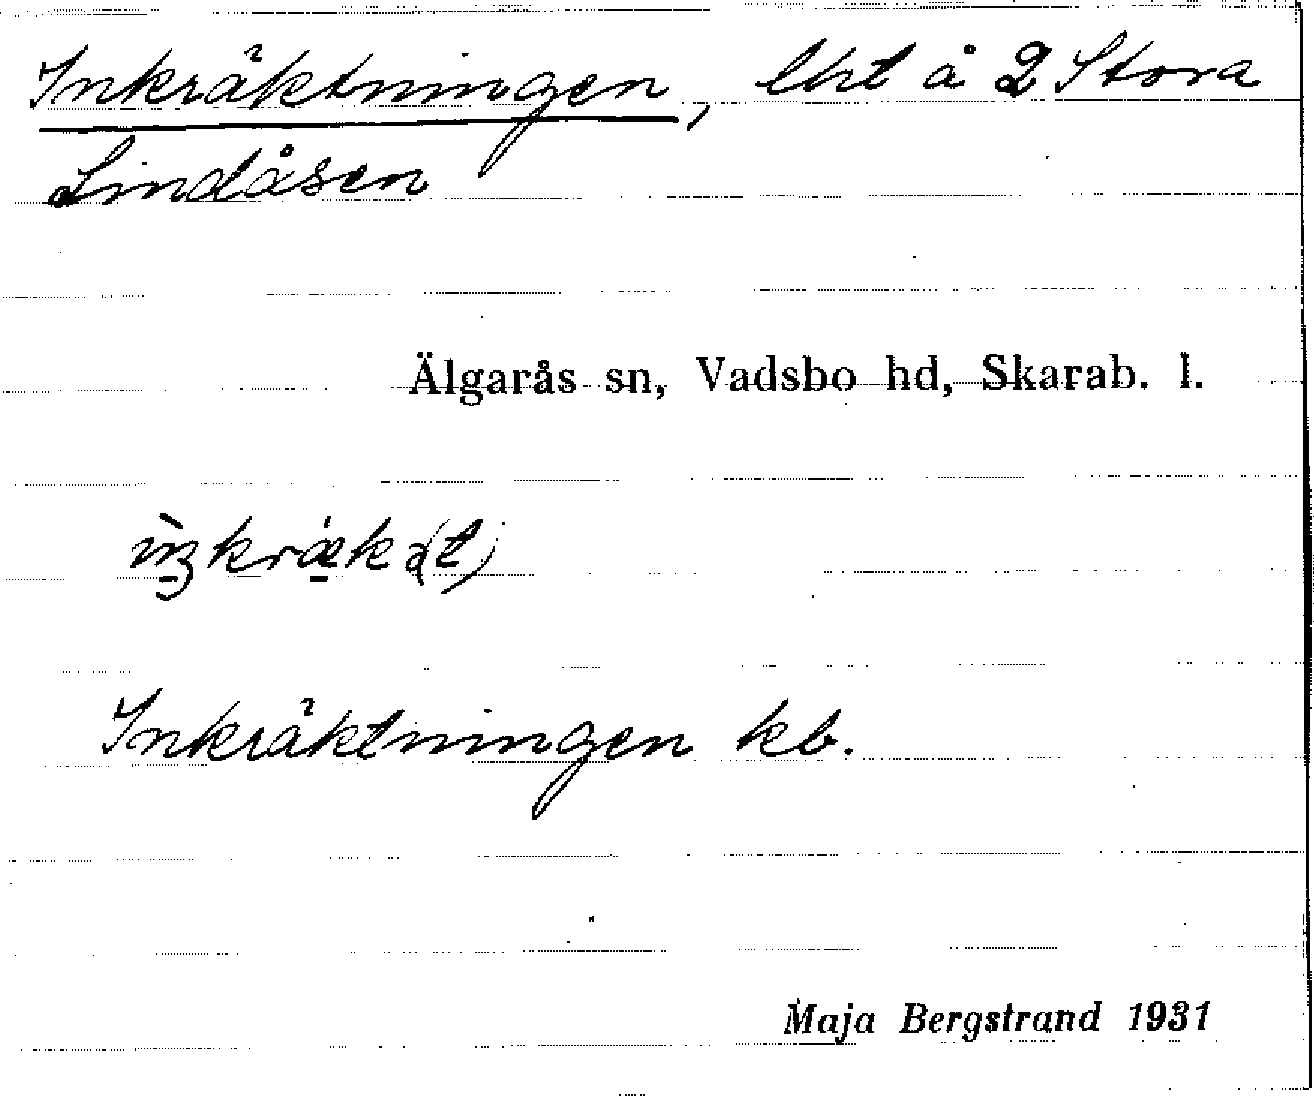 Inkräktningen, lht å 2 Stora
Lindåsen
Älgarås sn, Vadsbo hd, Skarab. l.
Inkräktningen kb.
Maja Bergstrand 1931